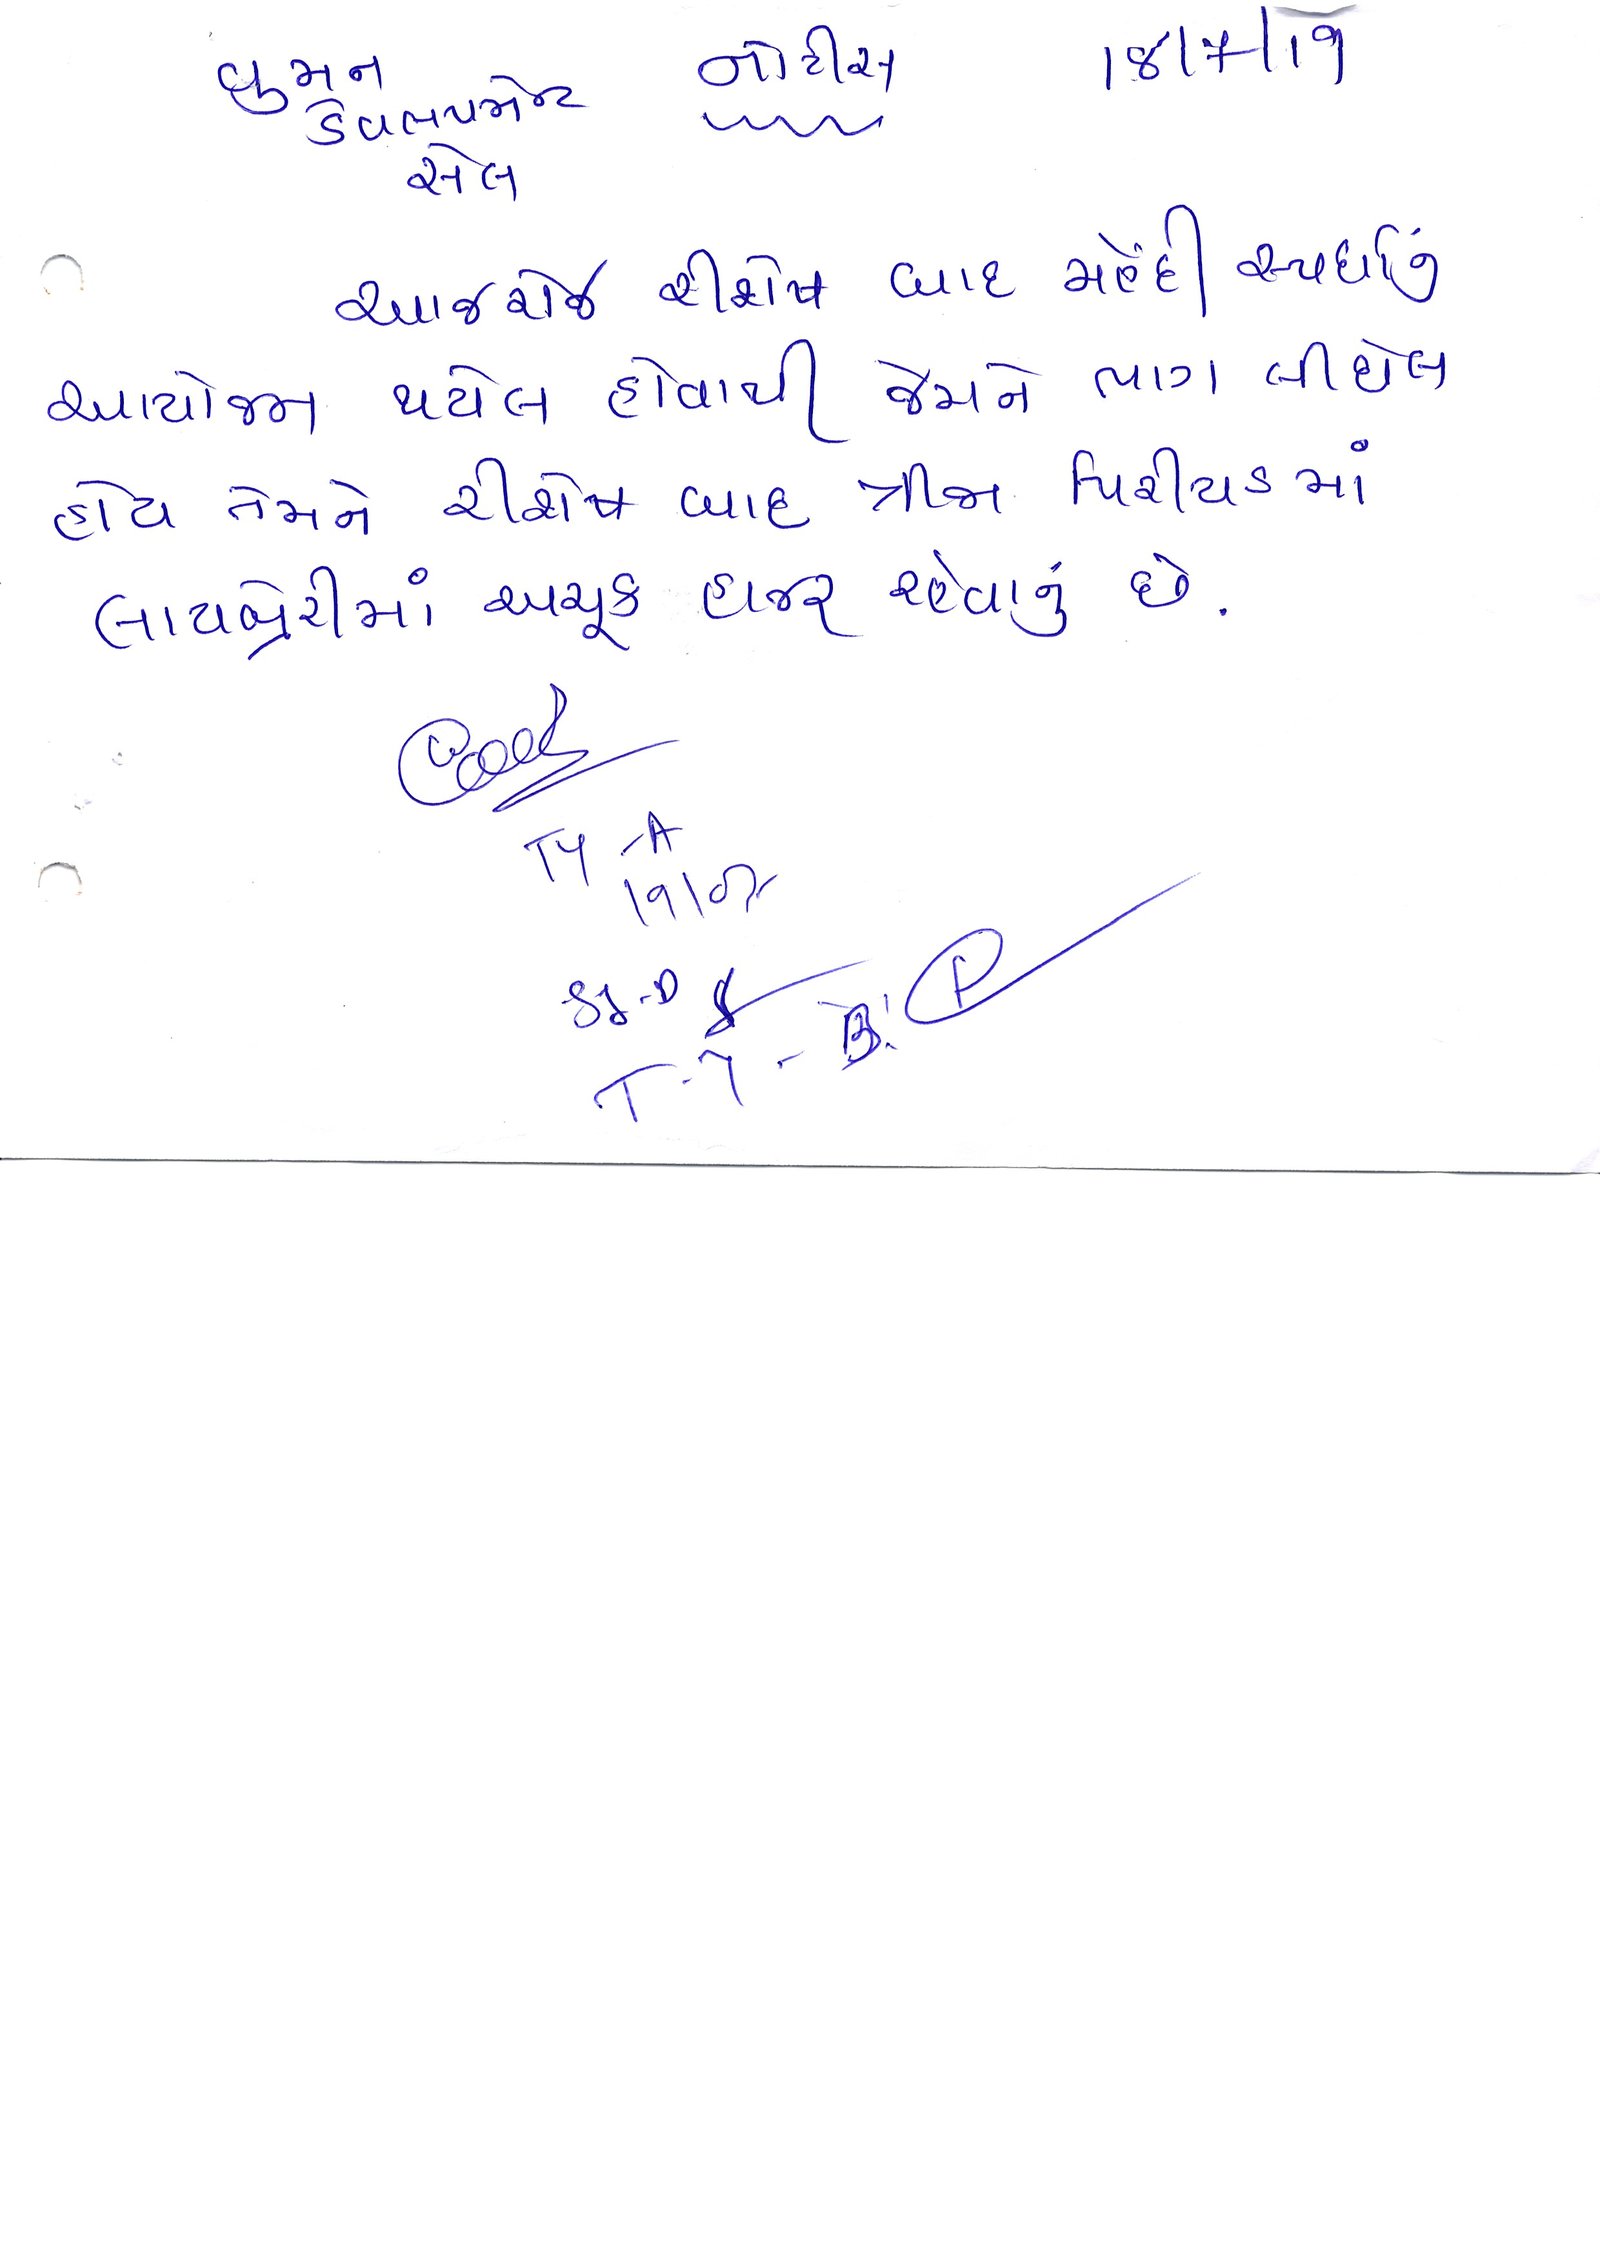 વુમન નોટીસ 18/7/19
ડેવલપમેન્ટ
સેલ
આજરોજ રીશેષ બાદ મહેંદી સ્પર્ધાનું
આયોજન થયેલ હોવાથી જેમને ભાગ લીધેલ
હોય તેમને રીશેષ બાદ ત્રીજા પિરીયડમાં
લાયબ્રેરીમાં અચૂક હાજર રહેવાનું છે.
TY -A
19/07
SJ-D
T-Y-B